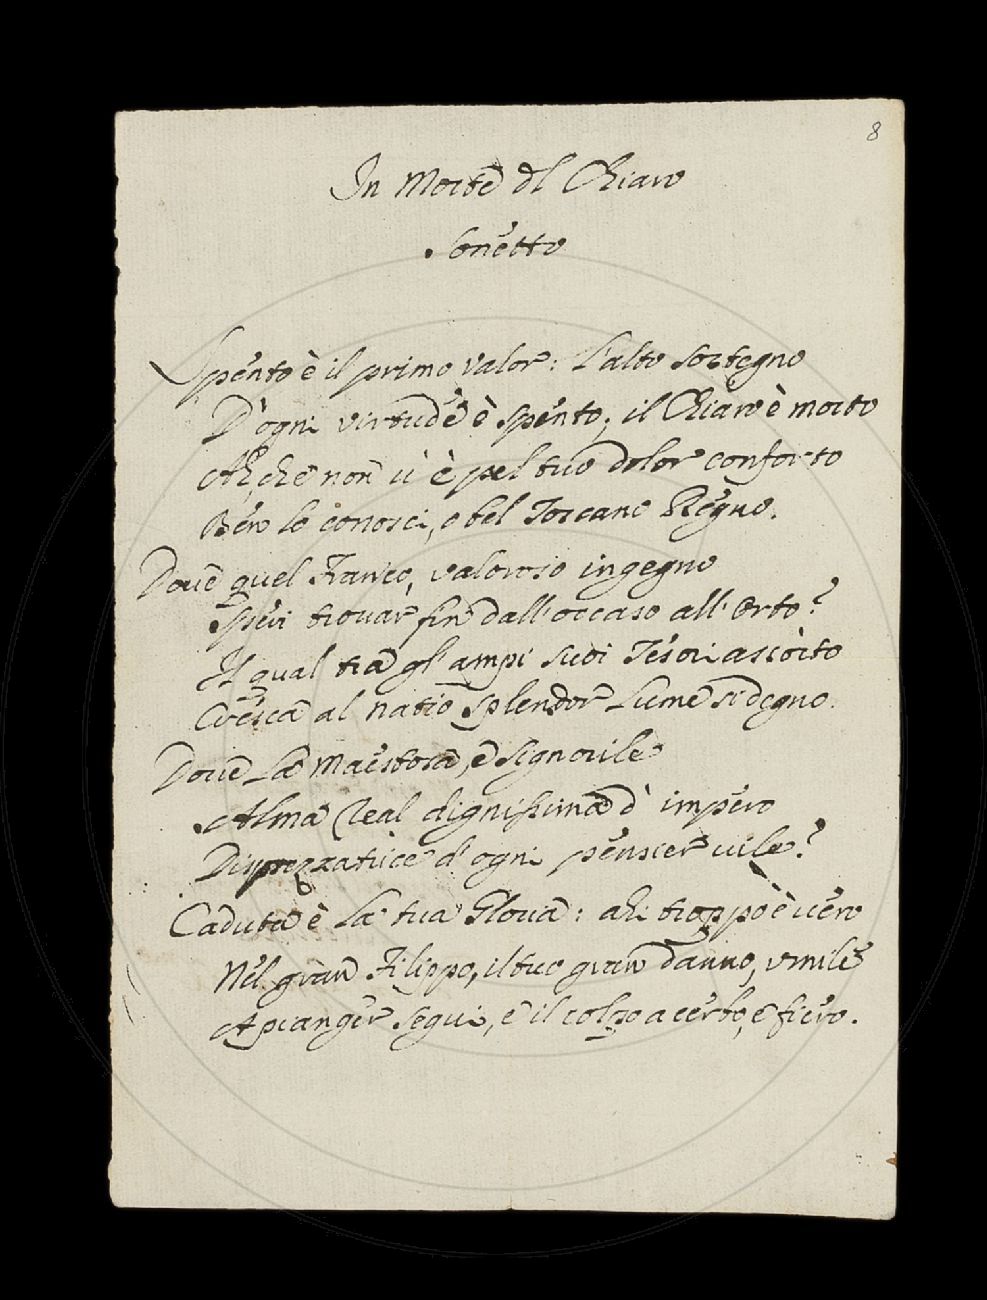 8
In Morte dl Chiaro
Sonetto
Spento è il primo valor: L'alto Sostegno
D'ogni virtude è spento, il Chiaro è morto
Ah, che non v'è pel tuo dolor conforto
Ben lo conosci, o bel Toscano Regno.
Dove quel Franco, valoroso ingegno
Speri trovar fin dall'occaso all'Orto?
Il qual tra gl'ampi suoi Tesori ascorto
Cresca al natio splendor Lume sì degno.
Dove La Maestosa, e Signorile
Alma Real dignissima d'impero
Disprezzatrice d'ogni pensier vile?
Caduta è La tua Gloria: ahi troppo è vero
Nel gran Filippo, il tuo gran danno, umile
A pianger segui, e il colpo acerbo, e fiero.